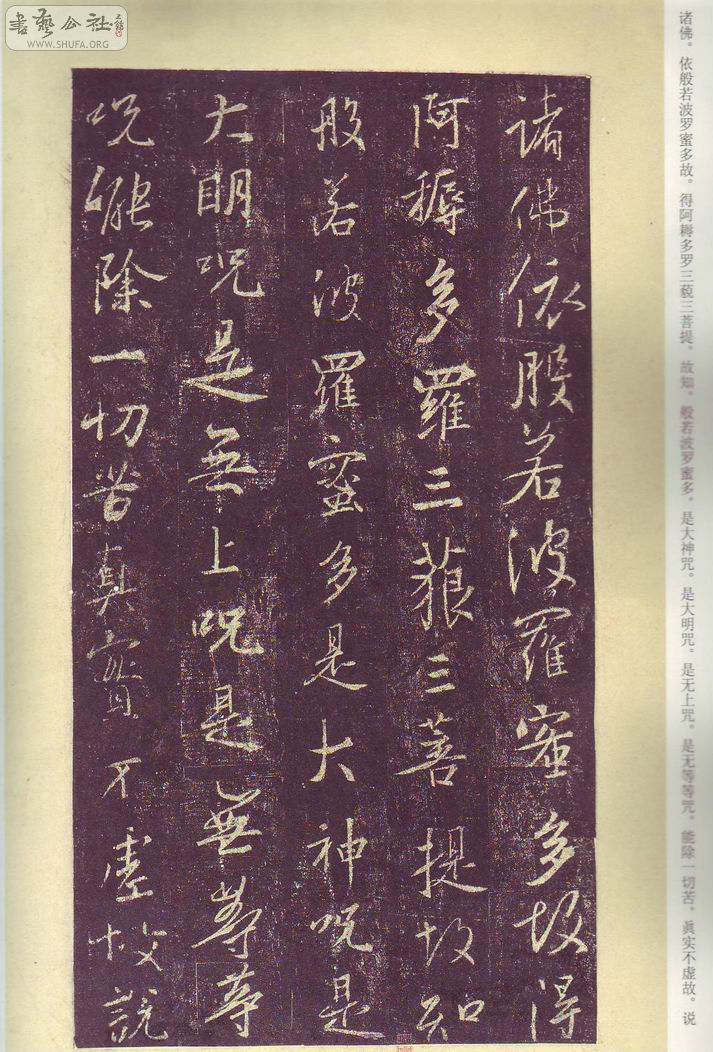 書藝公社
WWW.SHUFA.ORG
诸佛。依般若波罗蜜多故。得阿耨多罗三藐三菩提。故知。般若波罗蜜多。是大神咒。是大明咒。是无上咒。是无等等咒。能除一切苦。真实不虚故。说
諸佛依般若波羅蜜多故得
阿耨多羅三藐三菩提故知
般若波羅蜜多是大神呪是
大明呪是無上呪是無等等
呪能除一切苦真實不虛故說